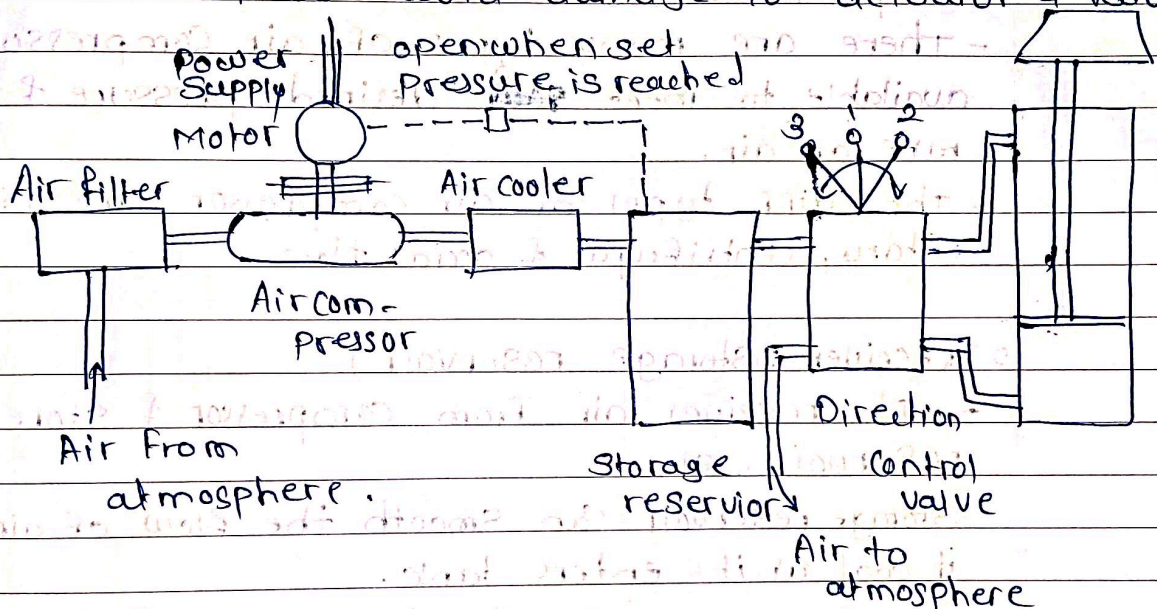 damage to actuator &
Power
Supply
Motor
open when set
pressure is reached
3 1 2
Air filter
Air cooler
Air com-
pressor
Air from
atmosphere.
Storage
reservior
Direction
Control
valve
Air to
atmosphere